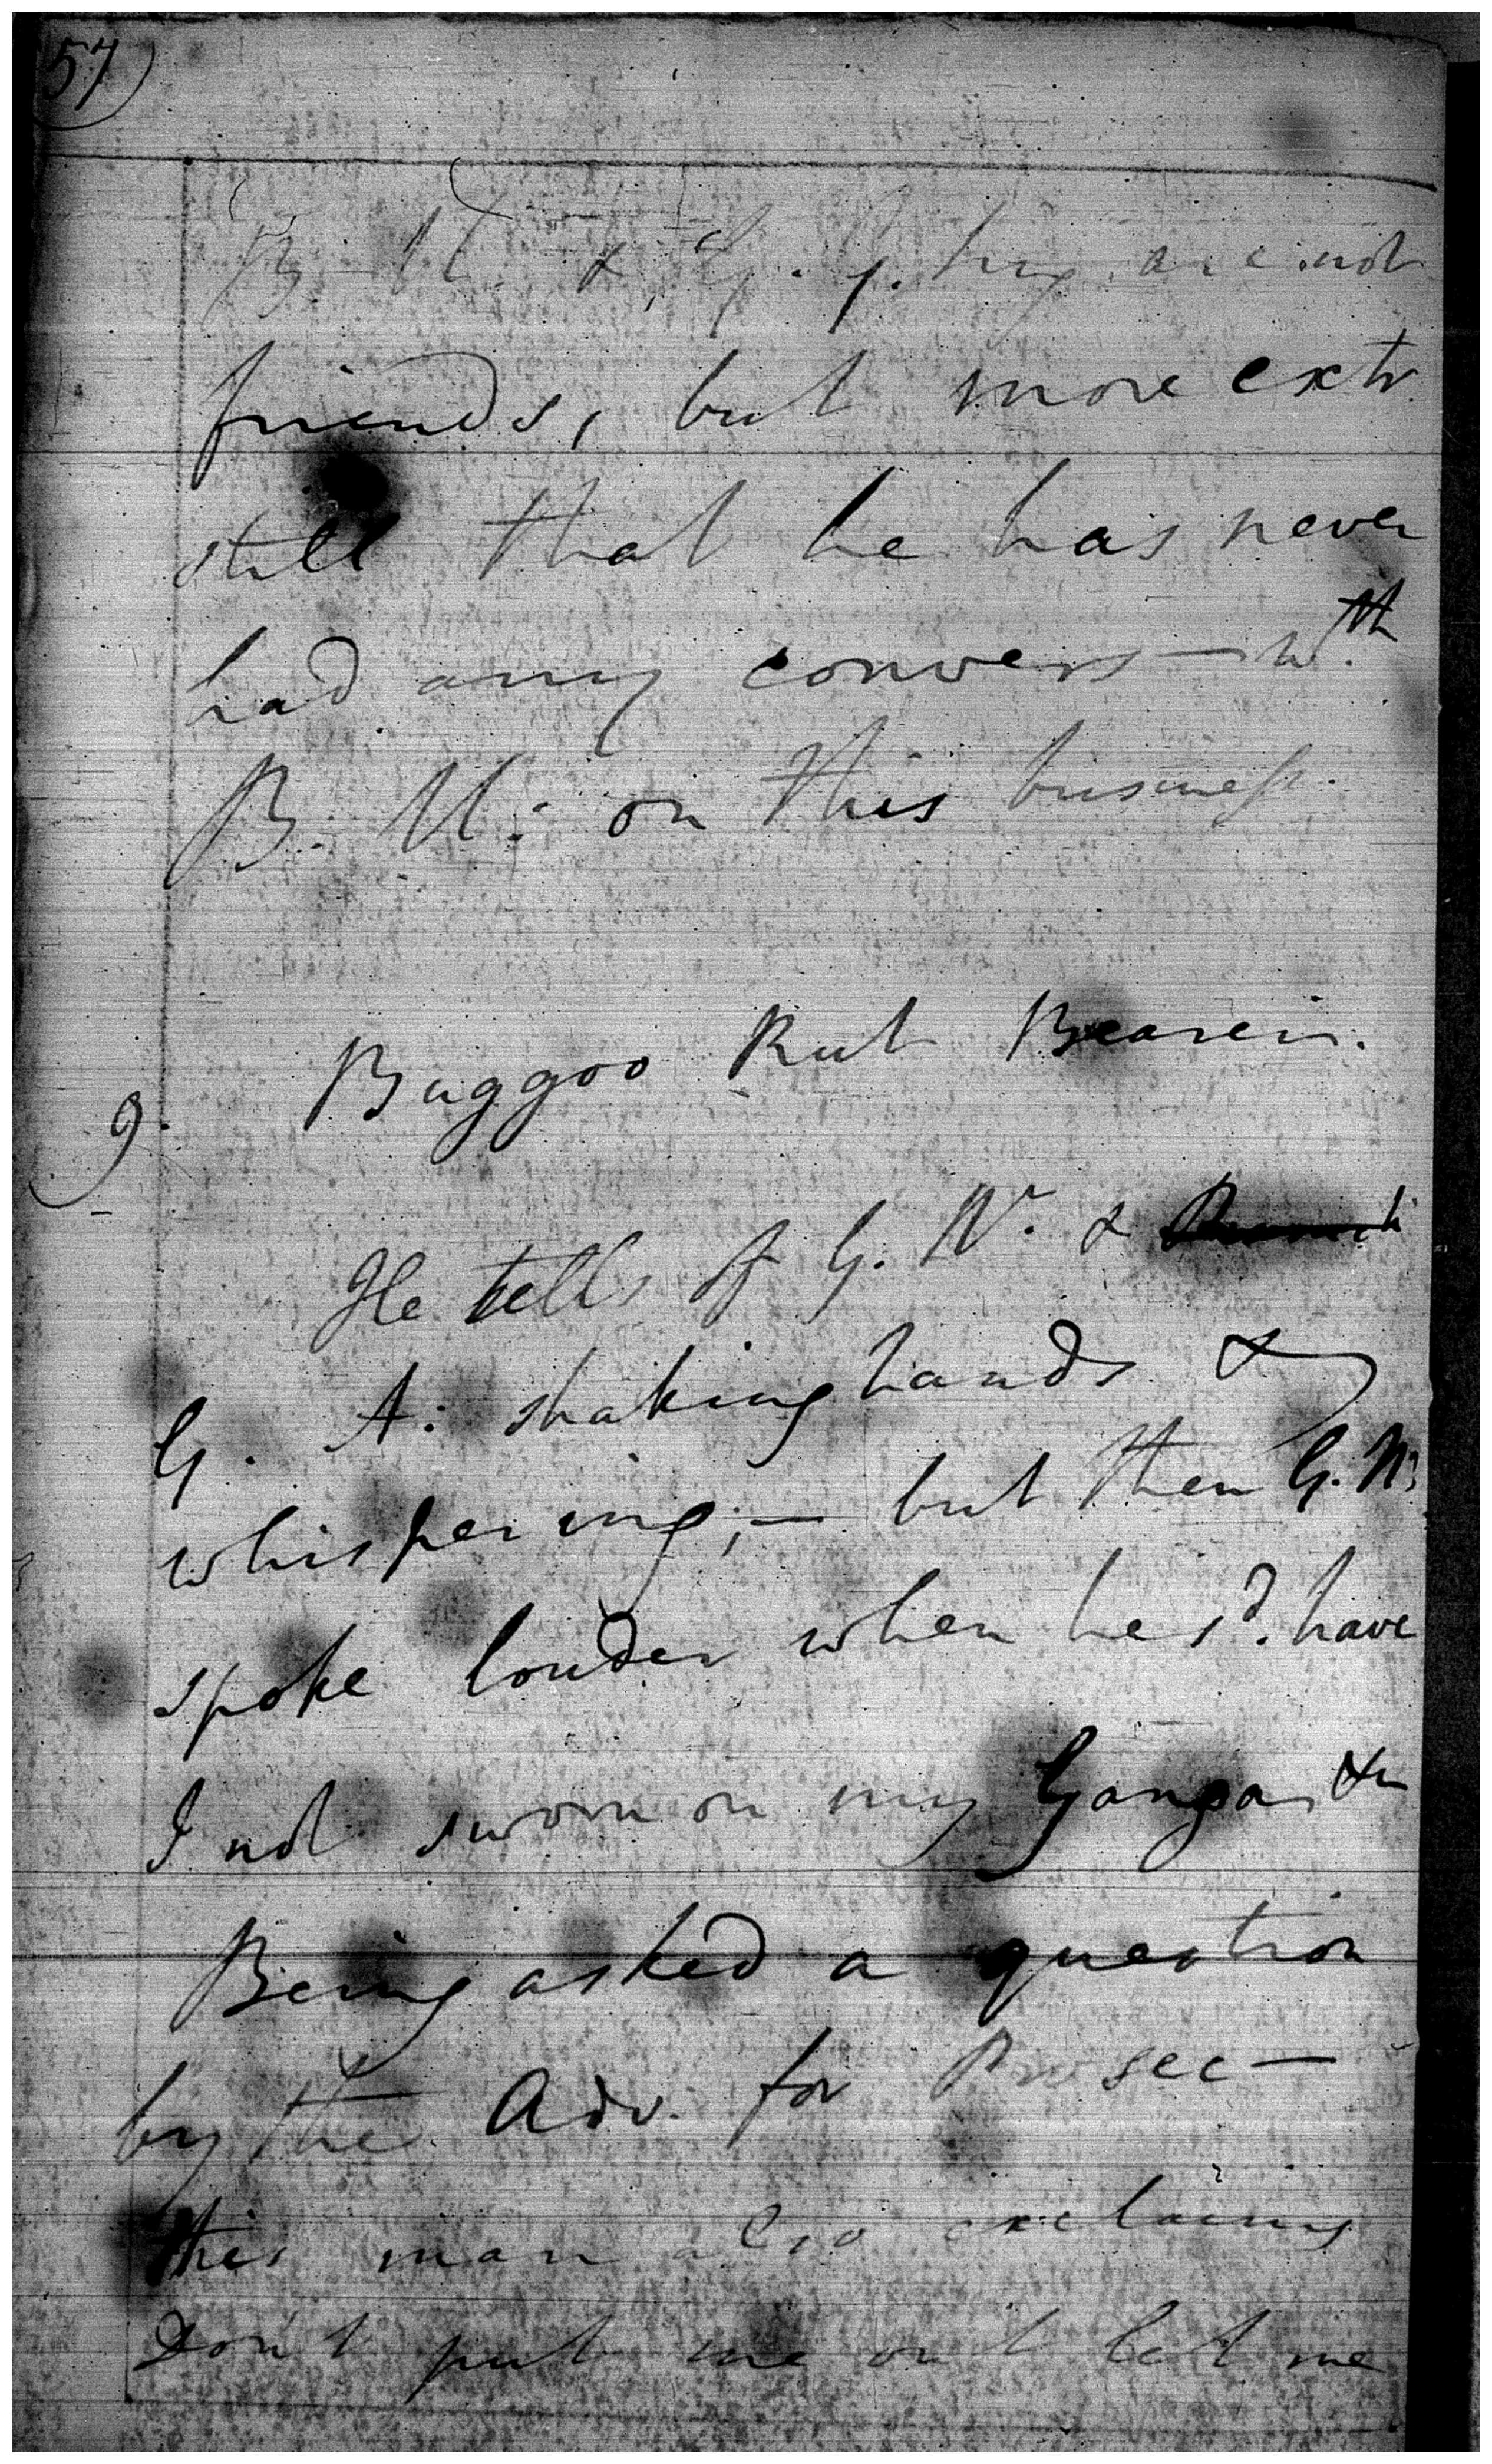 57
B. M. & G. they are not
friends, but more extr.
still that he has never
had any convers— w.th
B. M: on this business.
Buggoo Rut Bearer.
9.
He tells of G. N. &
G. A: shaking hands &
whispering;— but then G. N:
spoke louder when he sd. have
I not sworn on my Ganga &c
Being asked a question
by the Adv. for Prosec—
this man also exclaims
Don't put me out let me